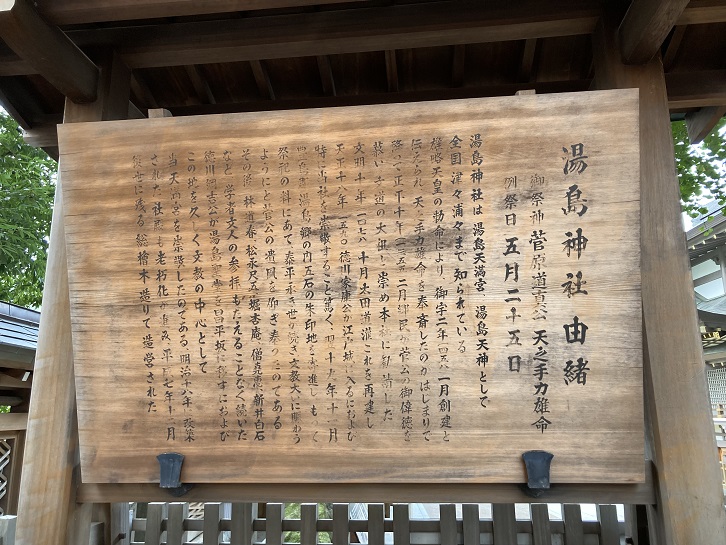 湯島神社由緒
御祭神 菅原道真公 天之手力雄命
例祭日 五月二十五日
湯島神社は湯島天満宮、湯島天神として
全国津々浦々まで知られている
雄略天皇の勅命により、御宇二年(四五八)一月創建と
伝えられ、天之手力雄命を奉斎したのがはじまりで
降って正平十年(一三五五)二月郷民が菅公の御偉徳を
慕い、文道の大祖と崇め本社に勧請した
文明十年(一四七八)十月太田道灌これを再建し
天正十八年(一五九〇)徳川家康公が江戸城に入るにおよび
特に当社を崇敬すること篤く、翌十九年十一月
湯島郷の内五石の朱印地を寄進し もって
祭祀の料にあて、泰平永き世が続き、文教大いに賑わう
ようにと菅公の遺風を仰ぎ奉ったのである
その後、林道春、松永尺五、堀杏庵、僧堯恵、新井白石
など 学者文人の参拝もたえることなく続いた
徳川綱吉公が湯島聖堂を昌平坂に移すにおよび
この地を久しく文教の中心として
当天満宮を崇敬したのである 明治十八年に改築
された社殿も老朽化が進み、平成七年十二月
後世に残る総檜木造りで造営された